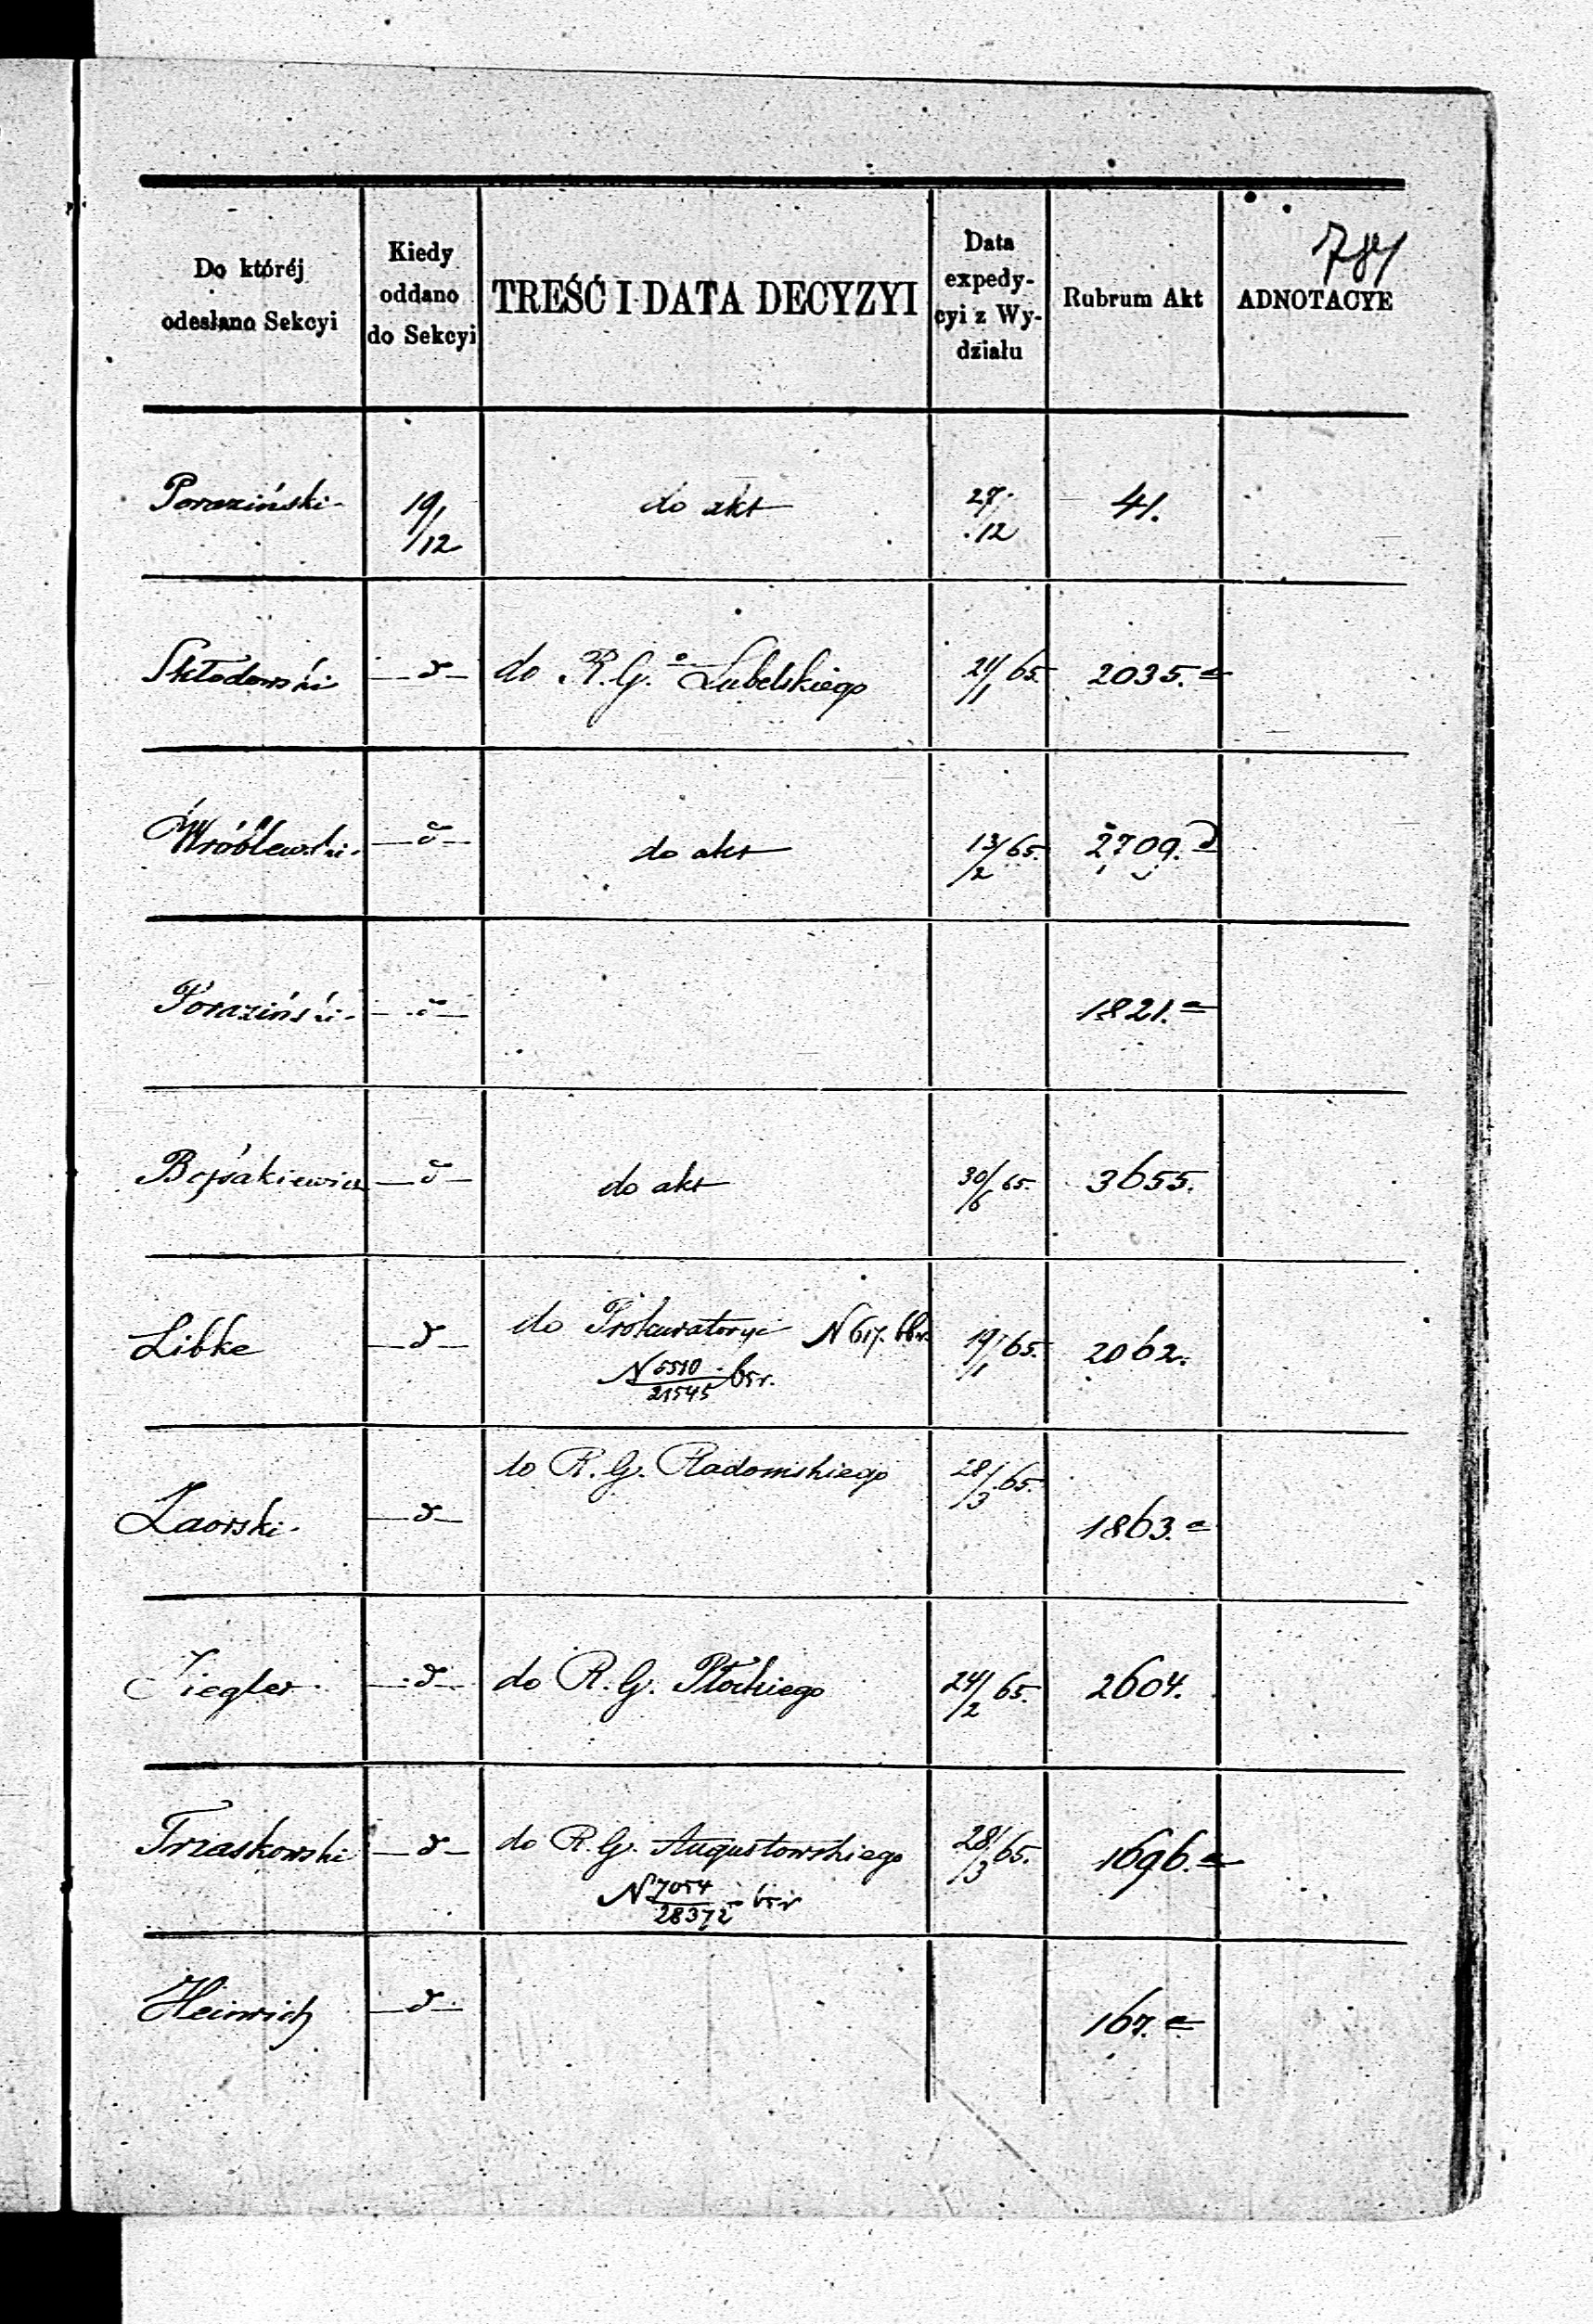 784
Do któréj odesłano Sekcyi
Kiedy oddano do Sekcyi
TREŚĆ I DATA DECYZYI
Data expedycyi z Wydziału
Rubrum Akt
ADNOTACYE
Poraziński 19/12 do akt 27/12 41.
Skłodowski —d— do R. G. Lubelskiego 21/1 65. 2035. a
Wróblewski —d— do akt 13/2 65. 2709. d
Poraziński —d— 1821. a
—d— do akt 30/6 65. 3655.
Libke —d— do Prokuratoryi N 617. 19/1 65. 2062.
N 5510/21545
Zaorski —d— do R. G. Radomskiego 28/3 65. 1863. a
Ziegler —d— do R. G. Płockiego 24/2 65. 2604.
Trzaskowski —d— do R. G. Augustowskiego 28/3 65. 1696. a
N 7054/28372
Heinrich —d— 167. a